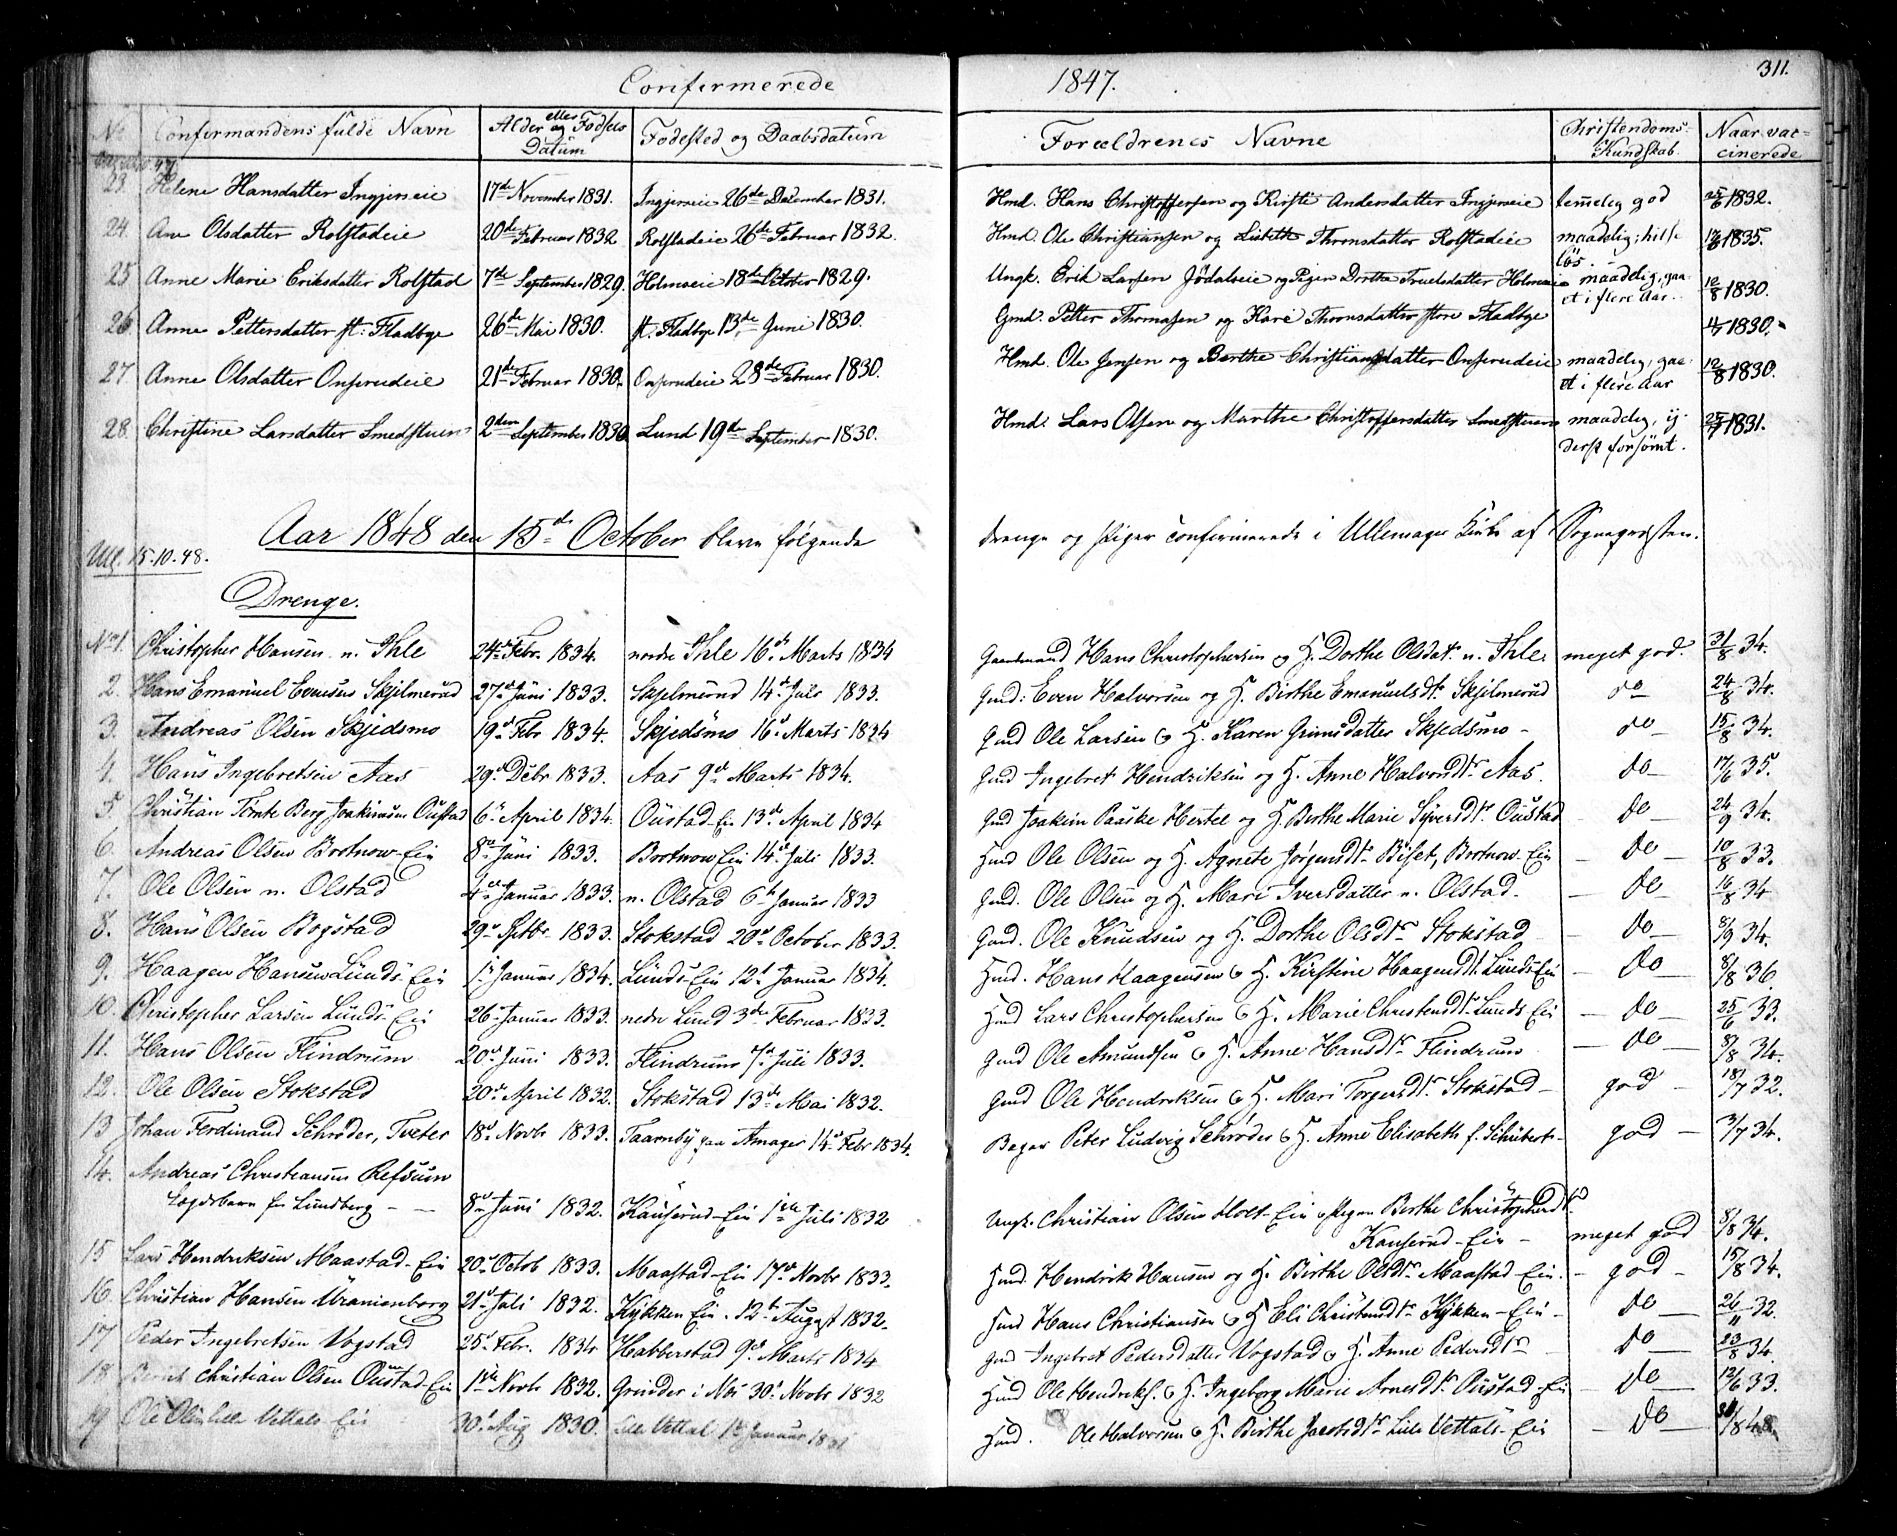 Confermerede 1847. 311.
No Confermandens fulde Navn Alder og eller Fødsels Datum Fødested og Daabsdatum Forældrenes Navne Christendoms-Kundskab Naar vaccinerede
23. Helene Hansdatter Ingjerseie 17de November 1831. Ingjerseie 26de December 1831. Hmd. Hans Christoffersen og Kirsti Andersdatter Ingjerseie temelig god 1832.
24. Ane Olsdatter Rolstadeie 20de Februar 1832 Rolstadeie 26de Februar 1832. Hmd. Ole Christiansen og Lisbeth Thronsdatter Rolstadeie maadelig; 1835.
25 Anne Marie Eriksdatter Rolstad 7de September 1829. Holmseie 18de October 1829. Ungk. Erik Larsen Jødalseie og Pigen Dorthe Truelsdatter Holmseie maadelig, gaaet i flere Aar. 12/8 1830.
26 Anne Pettersdatter st. Fladbye 26de Mai 1830. st. Fladbye 13de Juni 1830. Gmd. Petter Thomassen og Kari Thronsdatter store Fladbye 1830.
27 Anne Olsdatter Onsrudeie 21de Februar 1830. Onsrudeie 28de Februar 1830. Hmd. Ole Jensen og Berthe Christiansdatter Onsrudeie maadelig, gaaet i flere Aar 12/8 1830.
28. Christine Larsdatter Smedstuen 2den September 1830 Lund 19de September 1830. Hmd. Lars Olsen og Marthe Christoffersdatter Smedstuen maadelig, yderst forsømt. 1831.
Aar 1848 den 15de October bleve følgende Drenge og Piger confirmerede i Ullensager Kirke af Sognepræsten.
Ull. 15.10.48.
Drenge.
No 1. Christopher Hansen n. Ihle 24de Febr. 1834. nordre Ihle 16de Marts 1834 Gaardmand Hans Christophersen og H. Dorthe Olsdatr. n. Ihle. meget god. 31/8 34.
2. Hans Emanuel Evensen Skjelmerud 27de Juni 1833. Skjelmerud 14de Juli 1833. Gmd: Even Halvorsen og H. Birthe Emanuelsdtr. Skjelmerud do 24/8 34.
3. Andreas Olsen Skjedsmo 19de Febr 1834. Skjedsmo 16de Marts 1834 Gmd Ole Larsen og H. Karen Grimsdatter Skjedsmo do 15/8 34.
4. Hans Ingebretsen Aas 29de Decbr 1833. Aas 9de Marts 1834. Gmd Ingebret Hendriksen og H. Anne Halvorsdtr. Aas. do 17/6 35.
5. Christian Tømte Berg Joakimsen Oustad 6te April 1834. Oustad-Ein 13de April 1834 Gmd Joakim Paaske Hertel og H Berthe Marie Syversdtr. Oustad do 24/9 34.
6. Andreas Olsen Brotnow-Ein 8de Juni 1833. Brotnow Ein 14de Juli 1833. Hmd Ole Olsen og H. Agnete Jørgensdtr. Biset, Brotnow-Ein do 10/8 33.
7. Ole Olsen n. Olstad 4de Januar 1833. n. Olstad 6te Januar 1833 Gmd. Ole Olsen og H. Mari Iversdatter n. Olstad. do 16/8 34
8. Hans Olsen Bogstad 29de Septbr 1833. Stokstad 20de October 1833. Gmd. Ole Knudsen og H. Dorthe Olsdtr. Stokstad do 8/9 34.
9. Haagen Hansen Lunds Ein 1ste Januar 1834. Lunds-Ein 12te Januar 1834. Hmd. Hans Haagensen og H. Kirstine Haagensdt. Lunds Ein do 8/8 36.
10. Christopher Larsen Lunds Ein 26de Januar 1833. nedre Lund 3die Februar 1833. Hmd Lars Christophersen og H. Marie Christensdtr. Lunds Ein do 25/6 33.
11. Hans Olsen Flindrum 20de Juni 1833. Flindrum 7de Juli 1833. Gmd Ole Amundsen og H. Anne Hansdtr Flindrum do 8/8 34.
12. Ole Olsen Stokstad 20de April 1832. Stokstad 13de Mai 1832. Gmd Ole Hendriksen og H. Mari Torgersdtr. Stokstad god 18/7 32.
13 Johan Ferdinand Schrøder, Tveter 18de Novbr 1833. Taarnby paa Amager 14de Febr 1834. Bager Peter Ludvig Schrøder og H. Anne Elisabeth f. Schubert god 3/7 34.
14. Andreas Christiansen Refsum
Lægdsbarn fra Lundberg 8de Juni 1832. Kauserud-Ein 1ste Juli 1832 Ungk. Christian Olsen Holt-Ein og Pigen Berthe Christophersdtr.
Kauserud-Ein meget god 8/8 34.
15 Lars Hendriksen Maastad-Ein 20de Octob 1833. Maastad-Ein 17de Novbr 1833. Hmd. Hendrik Hansen og H. Birthe Olsdtr. Maastad-Ein. god 15/8 34.
16. Christian Hansen Uranienborg 21de Juli 1832. Kykken Ein 12te August 1832. Hmd Hans Christiansen og H Eli Christensdtr. Kykken-Ein do 26/11 32
17 Peder Ingebretsen Vogstad 25de Febr. 1834 Habberstad 9de Marts 1834 Gmd Ingebret Pedersdatter Vogstad og H. Anne Pedersdtr do 23/8 34.
18 Bernt Christian Olsen Oustad-Ein 1ste Novbr 1832. Grinder i Nes 30de Novbr 1832 Hmd Ole Hendriks. og H. Ingeborg Marie Arnesdtr. Oustad-Ein do 12/6 33.
19 Ole Olsen Lille Vettals Ein 30te Aug 1830. Lille Vettal 1ste Januar 1831 Hmd. Ole Halvorsen og H. Birthe Jacobsdtr Lille Vettals-Ein do 48.